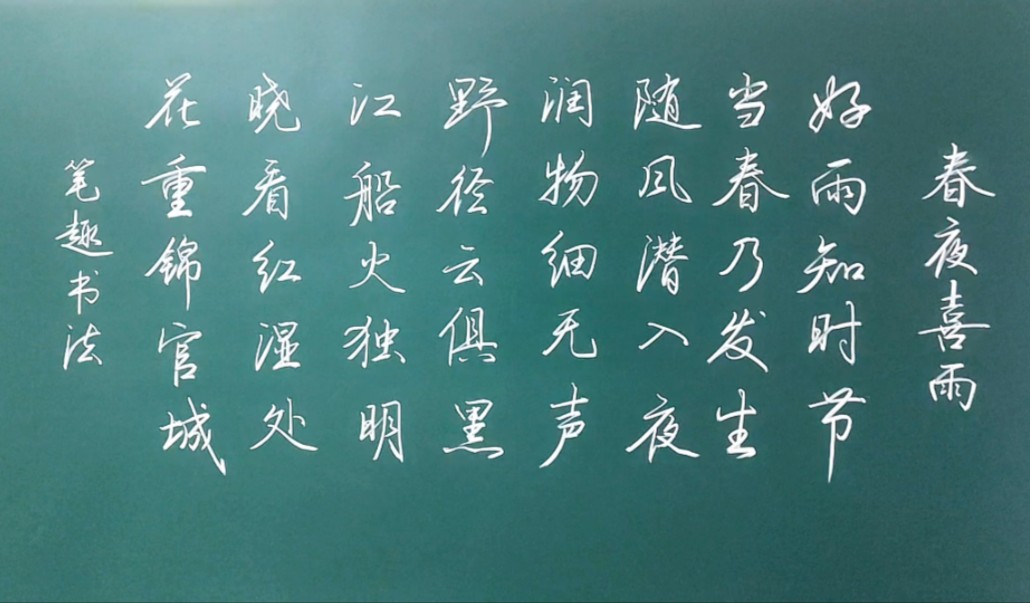 春夜喜雨
好雨知时节
当春乃发生
随风潜入夜
润物细无声
野径云俱黑
江船火独明
晓看红湿处
花重锦官城
笔趣书法